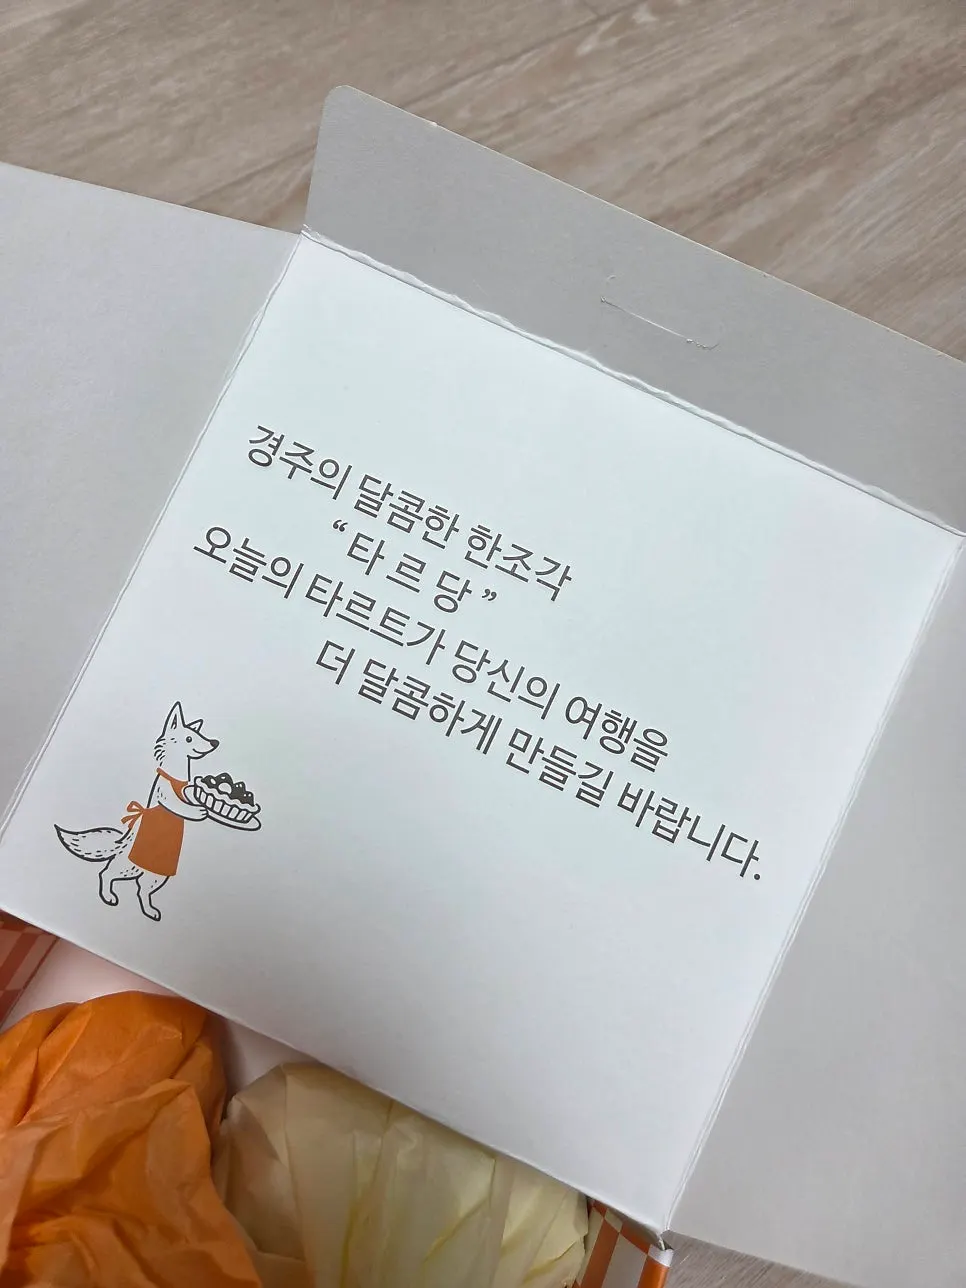 경주의 달콤한 한조각
“타르당”
오늘의 타르트가 당신의 여행을
더 달콤하게 만들길 바랍니다.